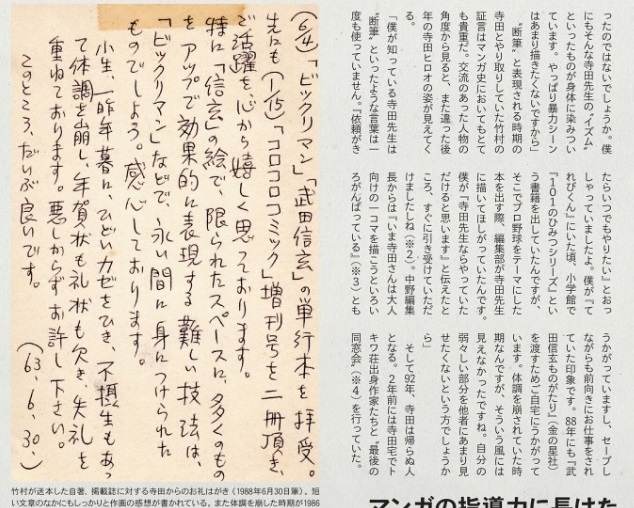 (6/4)「ビックリマン」「武田信玄」の単行本を拝受。
先にも(1/15)「コロコロコミック」増刊号を二冊頂き、
ご活躍を心から嬉しく思っております。
特に「信玄」の絵で、限られたスペースに、多くのもの
をアップで効果的に表現する難しい技法は、
「ビックリマン」などで、永い間に身につけられた
ものでしよう。感心しております。
小生、一昨年暮に、ひどいカゼをひき、不摂生もあっ
て体調を崩し、年賀状も礼状も欠き、失礼を
重ねております。悪しからずお許し下さい。
このところ、だいぶ良いです。
(63.6.30.)
竹村が送本した自著、掲載誌に対する寺田からのお礼はがき(1988年6月30日筆)。短
い文章のなかにもしっかりと作画の感想が書かれている。また体調を崩した時期が1986
ったのではないでしょうか。僕
にもそんな寺田先生の〝イズム〟
といったものが身体に染みつい
ています。やっぱり暴力シーン
はあまり描きたくないですから」
〝断筆〟と表現される時期の
寺田とやり取りしていた竹村の
証言はマンガ史においてもとて
も貴重だ。交流のあった人物の
角度から見ると、また違った後
年の寺田ヒロオの姿が見えてく
る。
「僕が知っている寺田先生は
〝断筆〟といったような言葉は一
度も使っていません。『依頼がき
たらいつでもやりたい』とおっ
しゃっていましたよ。僕が『て
れびくん』にいた頃、小学館で
『101のひみつシリーズ』とい
う書籍を出していたんですが、
そこでプロ野球をテーマにした
本を出す際、編集部が寺田先生
に描いてほしがっていたんです。
僕が『寺田先生ならやっていた
だけると思います』と伝えたと
ころ、すぐに引き受けていただ
けましたしね(※2)。中野編集
長からは『いま寺田さんは大人
向けの一コマを描こうといろい
ろがんばっている』(※3)とも
うかがっていますし、セーブし
ながらも前向きにお仕事をされ
ていた印象です。88年にも『武
田信玄ものがたり』(金の星社)
を渡すためご自宅にうかがって
います。体調を崩されていた時
期なんですが、そういう風には
見えなかったですね。自分の
弱々しい部分を他者にあまり見
せたくないという方でしょうか
ら」
そして92年、寺田は帰らぬ人
となる。2年前には寺田宅でト
キワ荘出身作家たちと「最後の
同窓会」(※4)を行っていた。
マンガの指導力に長けた